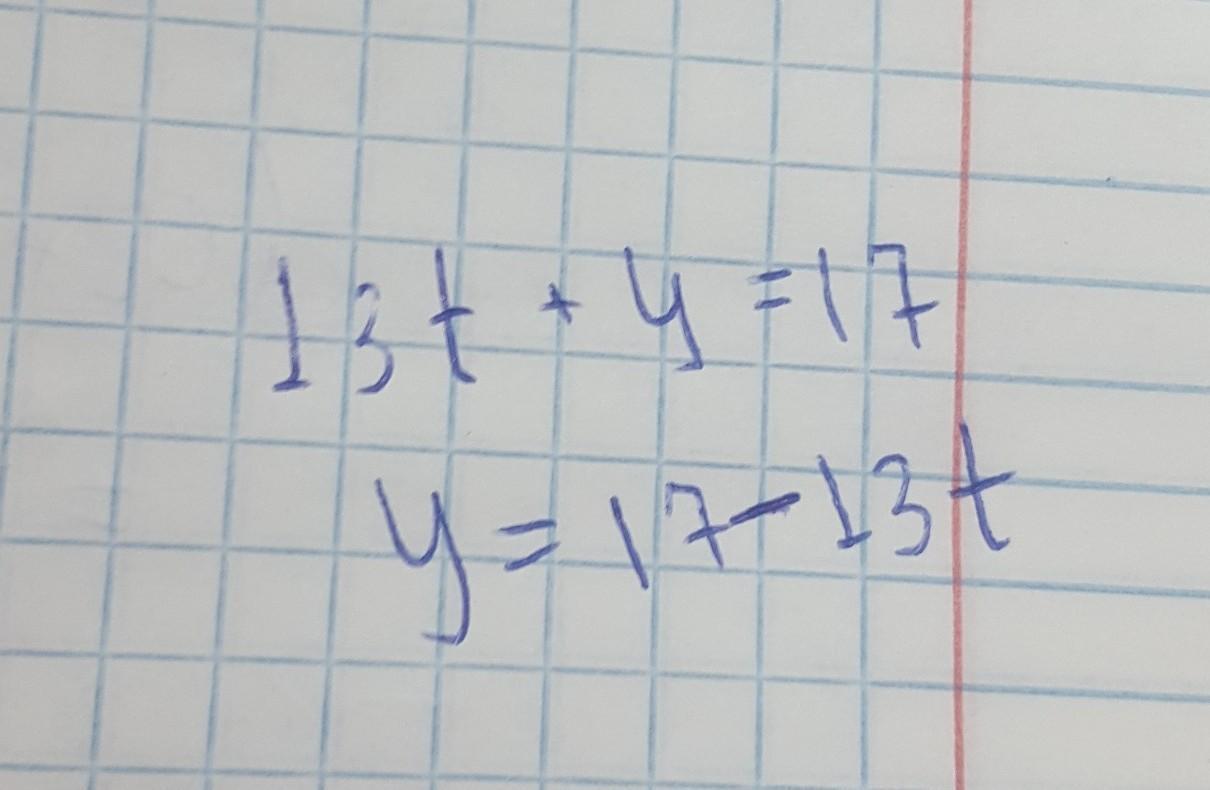 13t + y = 17
y = 17 - 13t